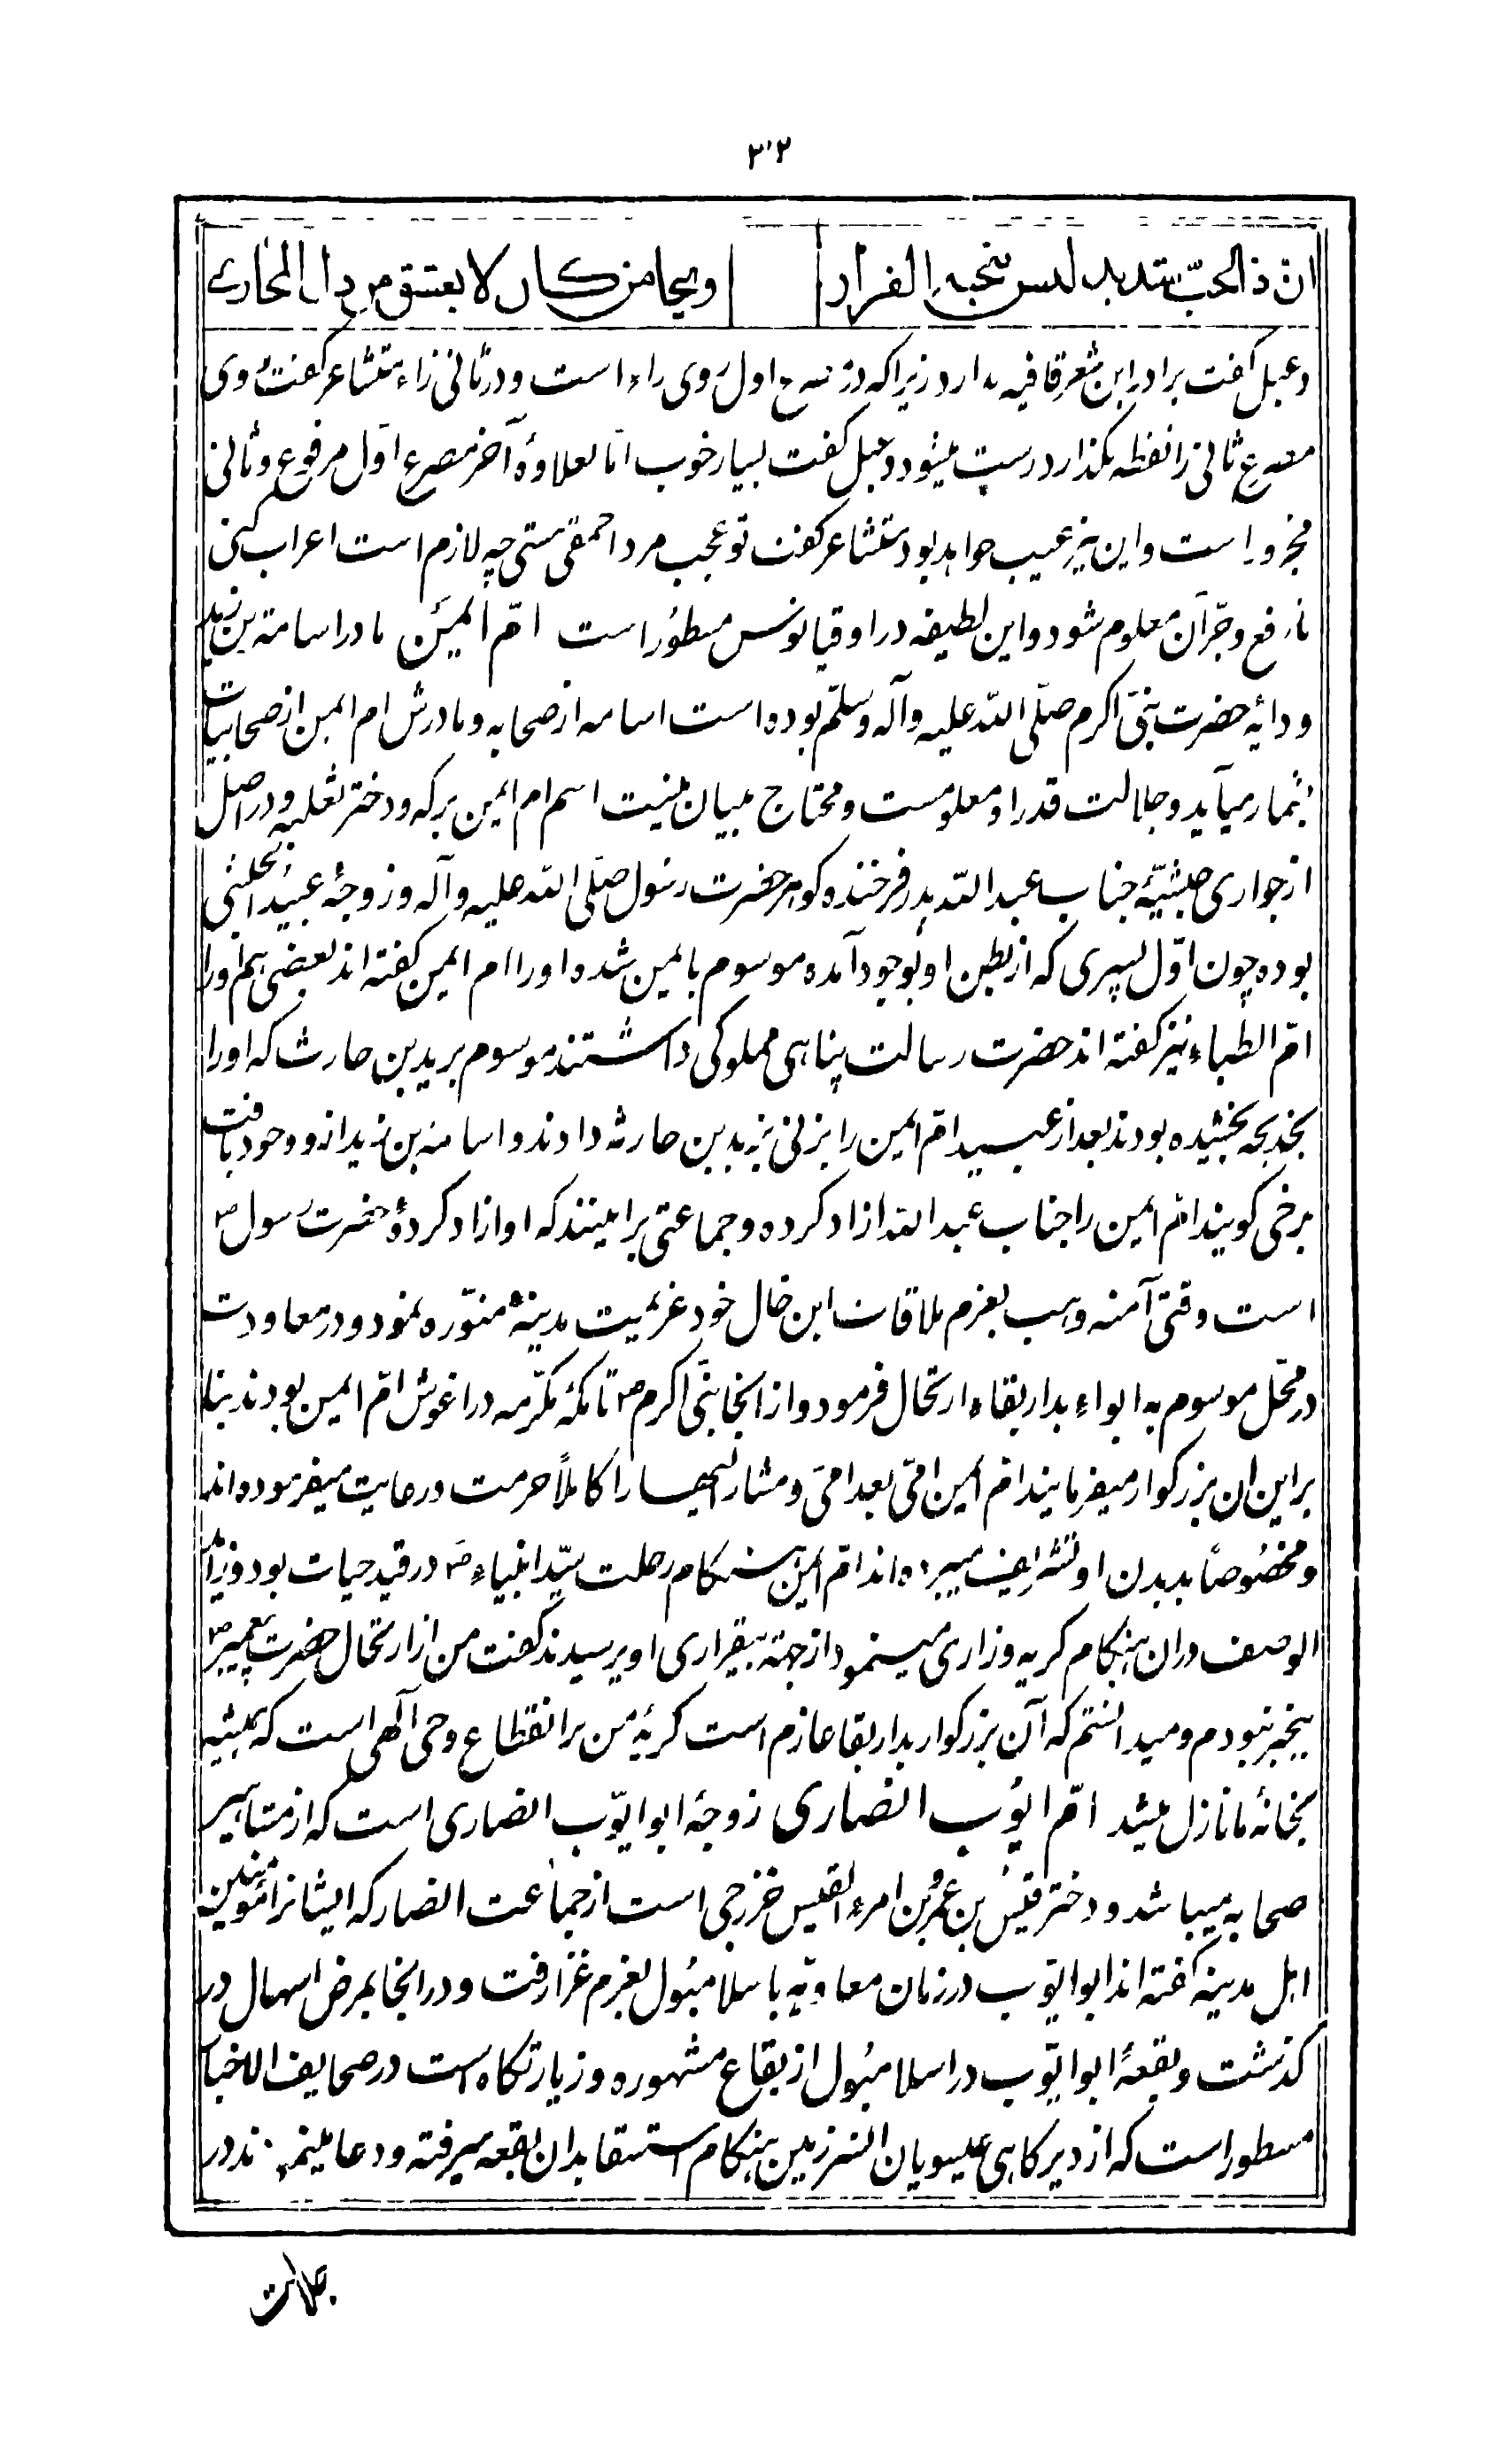 ۳۲
ان ذا الحبّ شدید لیس ینجیه الفرار ونجا من کان لا یعشق من ذل المخازی
دعبل گفت برادر این شعر قافیه ندارد زیرا که در مصرع اول روی راء است و در ثانی زاء متشاعر گفت روی
مصرع ثانی را نقطه مگذار درست میشود دعبل گفت بسیار خوب امّا بعلاوه آخر مصرع اوّل مرفوع و ثانی
مجرور است و این نیز عیب خواهد بود متشاعر گفت تو عجب مرد احمقی هستی چه لازم است اعراب کنی
تا رفع و جرّ آن معلوم شود و این لطیفه در اوقیانوس مسطور است امّ ایمَن مادر اسامة بن زید
و دایهٔ حضرت نبیّ اکرم صلّی الله علیه وآله وسلّم بوده است اسامه از صحابه و مادرش ام ایمن از صحابیات
بشمار میآید و جلالت قدر او معلومست و محتاج ببیان نیست اسم ام ایمن برکه و دختر ثعلبه و در اصل
از جواری حبشیّهٔ جناب عبدالله پدر فرخنده گوهر حضرت رسول صلّی الله علیه وآله و زوجهٔ عبیدالحبشی
بوده چون اوّل پسری که از بطن او بوجود آمده موسوم بایمن شده او را ام ایمن گفته اند بعضی هم او را
امّ الظباء نیز گفته اند حضرت رسالت پناهی مملوکی داشتند موسوم بزید بن حارث که او را
بخدیجه بخشیده بودند بعد از عبید امّ ایمن را بزنی بزید بن حارثه دادند و اسامة بن زید از او وجود یافت
برخی گویند امّ ایمن را جناب عبدالله ازاد کرده و جماعتی برا ینند که او ازاد کردهٔ حضرت رسول ص
است وقتی آمنه وهب بعزم ملاقات ابن خال خود عزیمت مدینهٔ منوّره نمود و در معاودت
در محّل موسوم به ابواء بدار بقاء ارتحال فرمود و از انجا نبّی اکرم ص تا مکّهٔ مکرّمه در اغوش امّ ایمن بودند بنا
بر این ان بزرگوار میفرمایند امّ ایمن امّی بعد امّی و مشار الیها را کاملاً حرمت و رعایت میفرموده اند
و مخصوصاً بدیدن او تشریف میبرده اند امّ ایمن هنگام رحلت سیّد انبیاء ص در قید حیات بود وزیّاً
الوصف دران هنگام گریه و زاری مینمود از جهة بیقراری او پرسیدند گفت من از ارتحال حضرت پیغمبر ص
بیخبر نبودم و میدانستم که آن بزرگوار بدار بقا عازم است گریهٔ من بر انقطاع وحی آلهی است که همیشه
بخانهٔ ما نازل میشد امّ ایّوب انصاری زوجهٔ ابو ایّوب انصاری است که از مشاهیر
صحابه میباشد و دختر قیس بن عمرو بن امرء القیس خزرجی است از جماعت انصار که ایشانرا مؤمنین
اهل مدینه گفته اند ابو ایّوب در زمان معاویّه باسلامبُول بعزم غزا رفت و در انجا بمرض اسهال در
گذشت و بقعهٔ ابو ایّوب در اسلامبُول از بقاع مشهوره و زیارتگاه است در صحایف الاخبار
مسطور است که از دیرگاهی عیسویان انسرزمین هنگام استسقا بدان بقعه میرفته و دعا مینمودند در